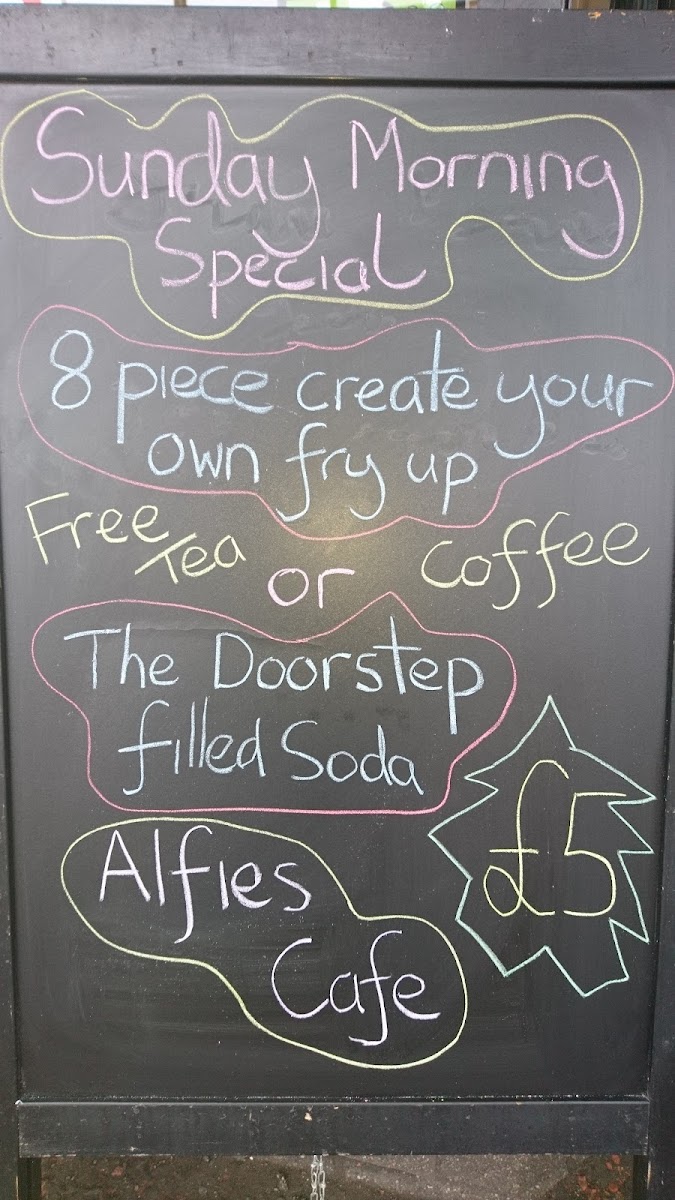 Sunday Morning
Special
8 piece create your
own fry up
Free Tea or Coffee
The Doorstep
filled Soda
£5
Alfies
Cafe